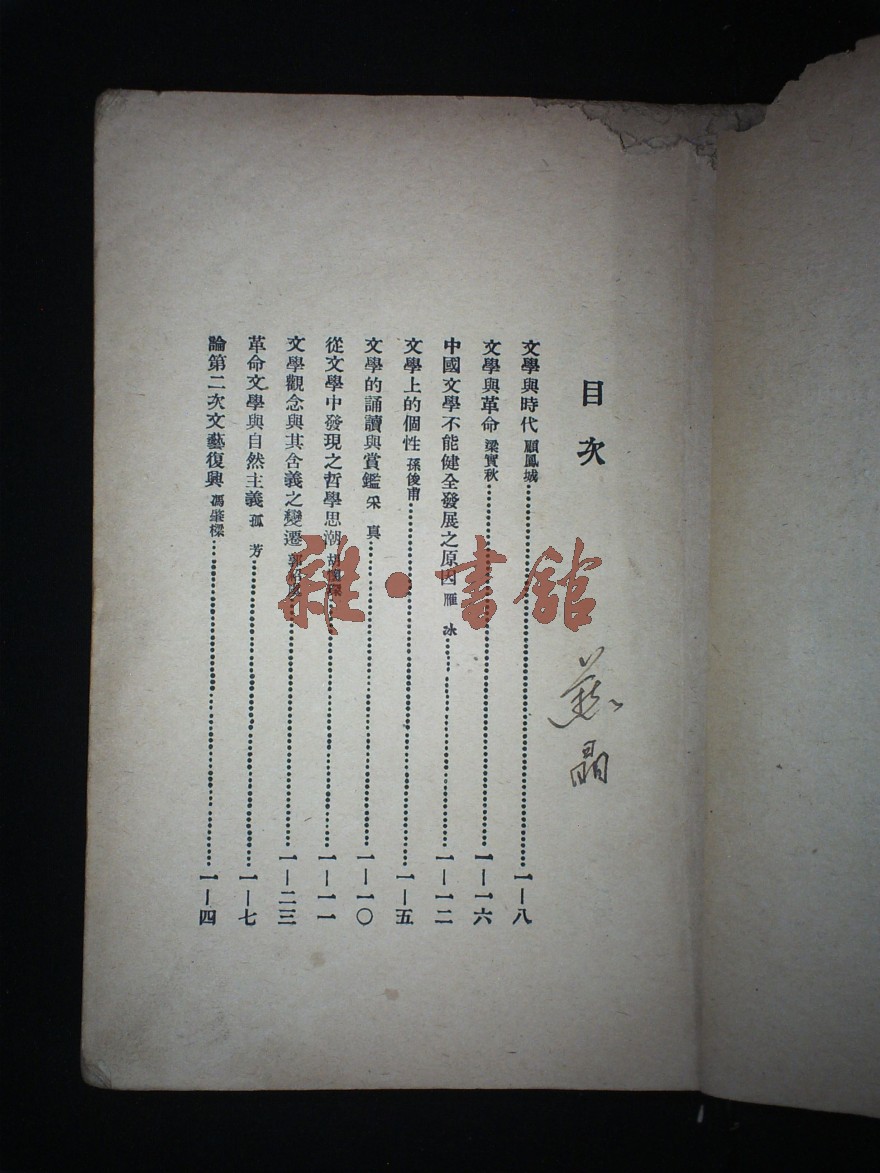 目次
文學與時代 顧鳳城 一—八
文學與革命 梁實秋 一—一六
中國文學不能健全發展之原因 雁冰 一—一二
文學上的個性 孫俍甫 一—五
文學的誦讀與賞鑑 采真 一—一〇
從文學中發現之哲學思潮 胡 一—一一
文學觀念與其含義之變遷 郭紹虞 一—二三
革命文學與自然主義 孤芳 一—七
論第二次文藝復興 馮肇樑 一—四
雜·書館
晶